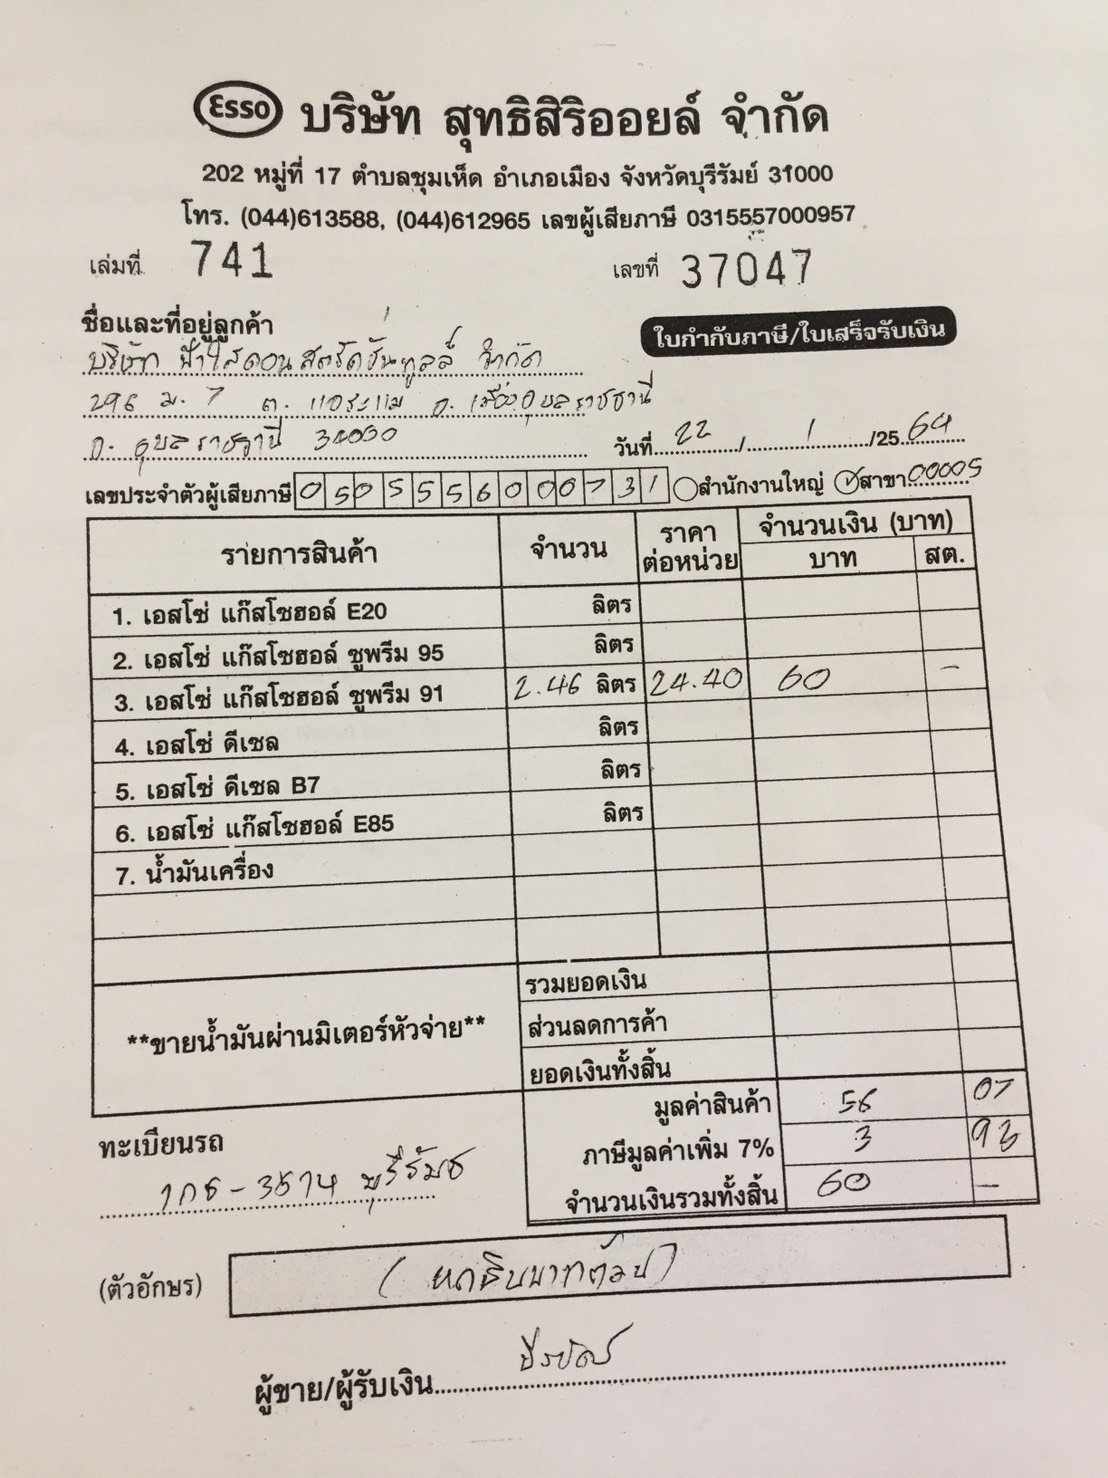 Esso บริษัท สุทธิสิริออยล์ จำกัด
202 หมู่ที่ 17 ตำบลชุมเห็ด อำเภอเมือง จังหวัดบุรีรัมย์ 31000
โทร. (044)613588, (044)612965 เลขผู้เสียภาษี 0315557000957
เล่มที่ 741 เลขที่ 37047
ชื่อและที่อยู่ลูกค้า
ใบกำกับภาษี/ใบเสร็จรับเงิน
บริษัท ฟ้าใส จำกัด
296 ม. 7 ต. แจระแม อ. เมืองอุบลราชธานี
จ. อุบลราชธานี 34000
วันที่ 22 / 1 /25 64
เลขประจำตัวผู้เสียภาษี 0505556000731 สำนักงานใหญ่ สาขา 00005
รายการสินค้า จำนวน ราคาต่อหน่วย จำนวนเงิน (บาท)
บาท สต.
1. เอสโซ่ แก๊สโซฮอล์ E20 ลิตร
2. เอสโซ่ แก๊สโซฮอล์ ซูพรีม 95 ลิตร
3. เอสโซ่ แก๊สโซฮอล์ ซูพรีม 91 2.46 ลิตร 24.40 60 -
4. เอสโซ่ ดีเซล ลิตร
5. เอสโซ่ ดีเซล B7 ลิตร
6. เอสโซ่ แก๊สโซฮอล์ E85 ลิตร
7. น้ำมันเครื่อง
รวมยอดเงิน
**ขายน้ำมันผ่านมิเตอร์หัวจ่าย** ส่วนลดการค้า
ยอดเงินทั้งสิ้น
มูลค่าสินค้า 56 07
ทะเบียนรถ ภาษีมูลค่าเพิ่ม 7% 3 93
บุรีรัมย์ จำนวนเงินรวมทั้งสิ้น 60 -
(ตัวอักษร) (หกสิบบาทถ้วน)
ผู้ขาย/ผู้รับเงิน